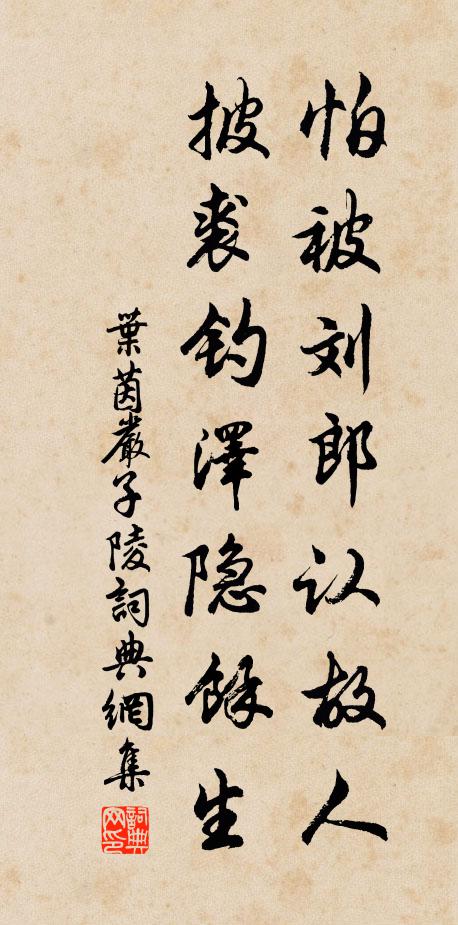 怕被刘郎认故人
披裘钓泽隐馀生
葉茵嚴子陵詞典網集
詞典網印